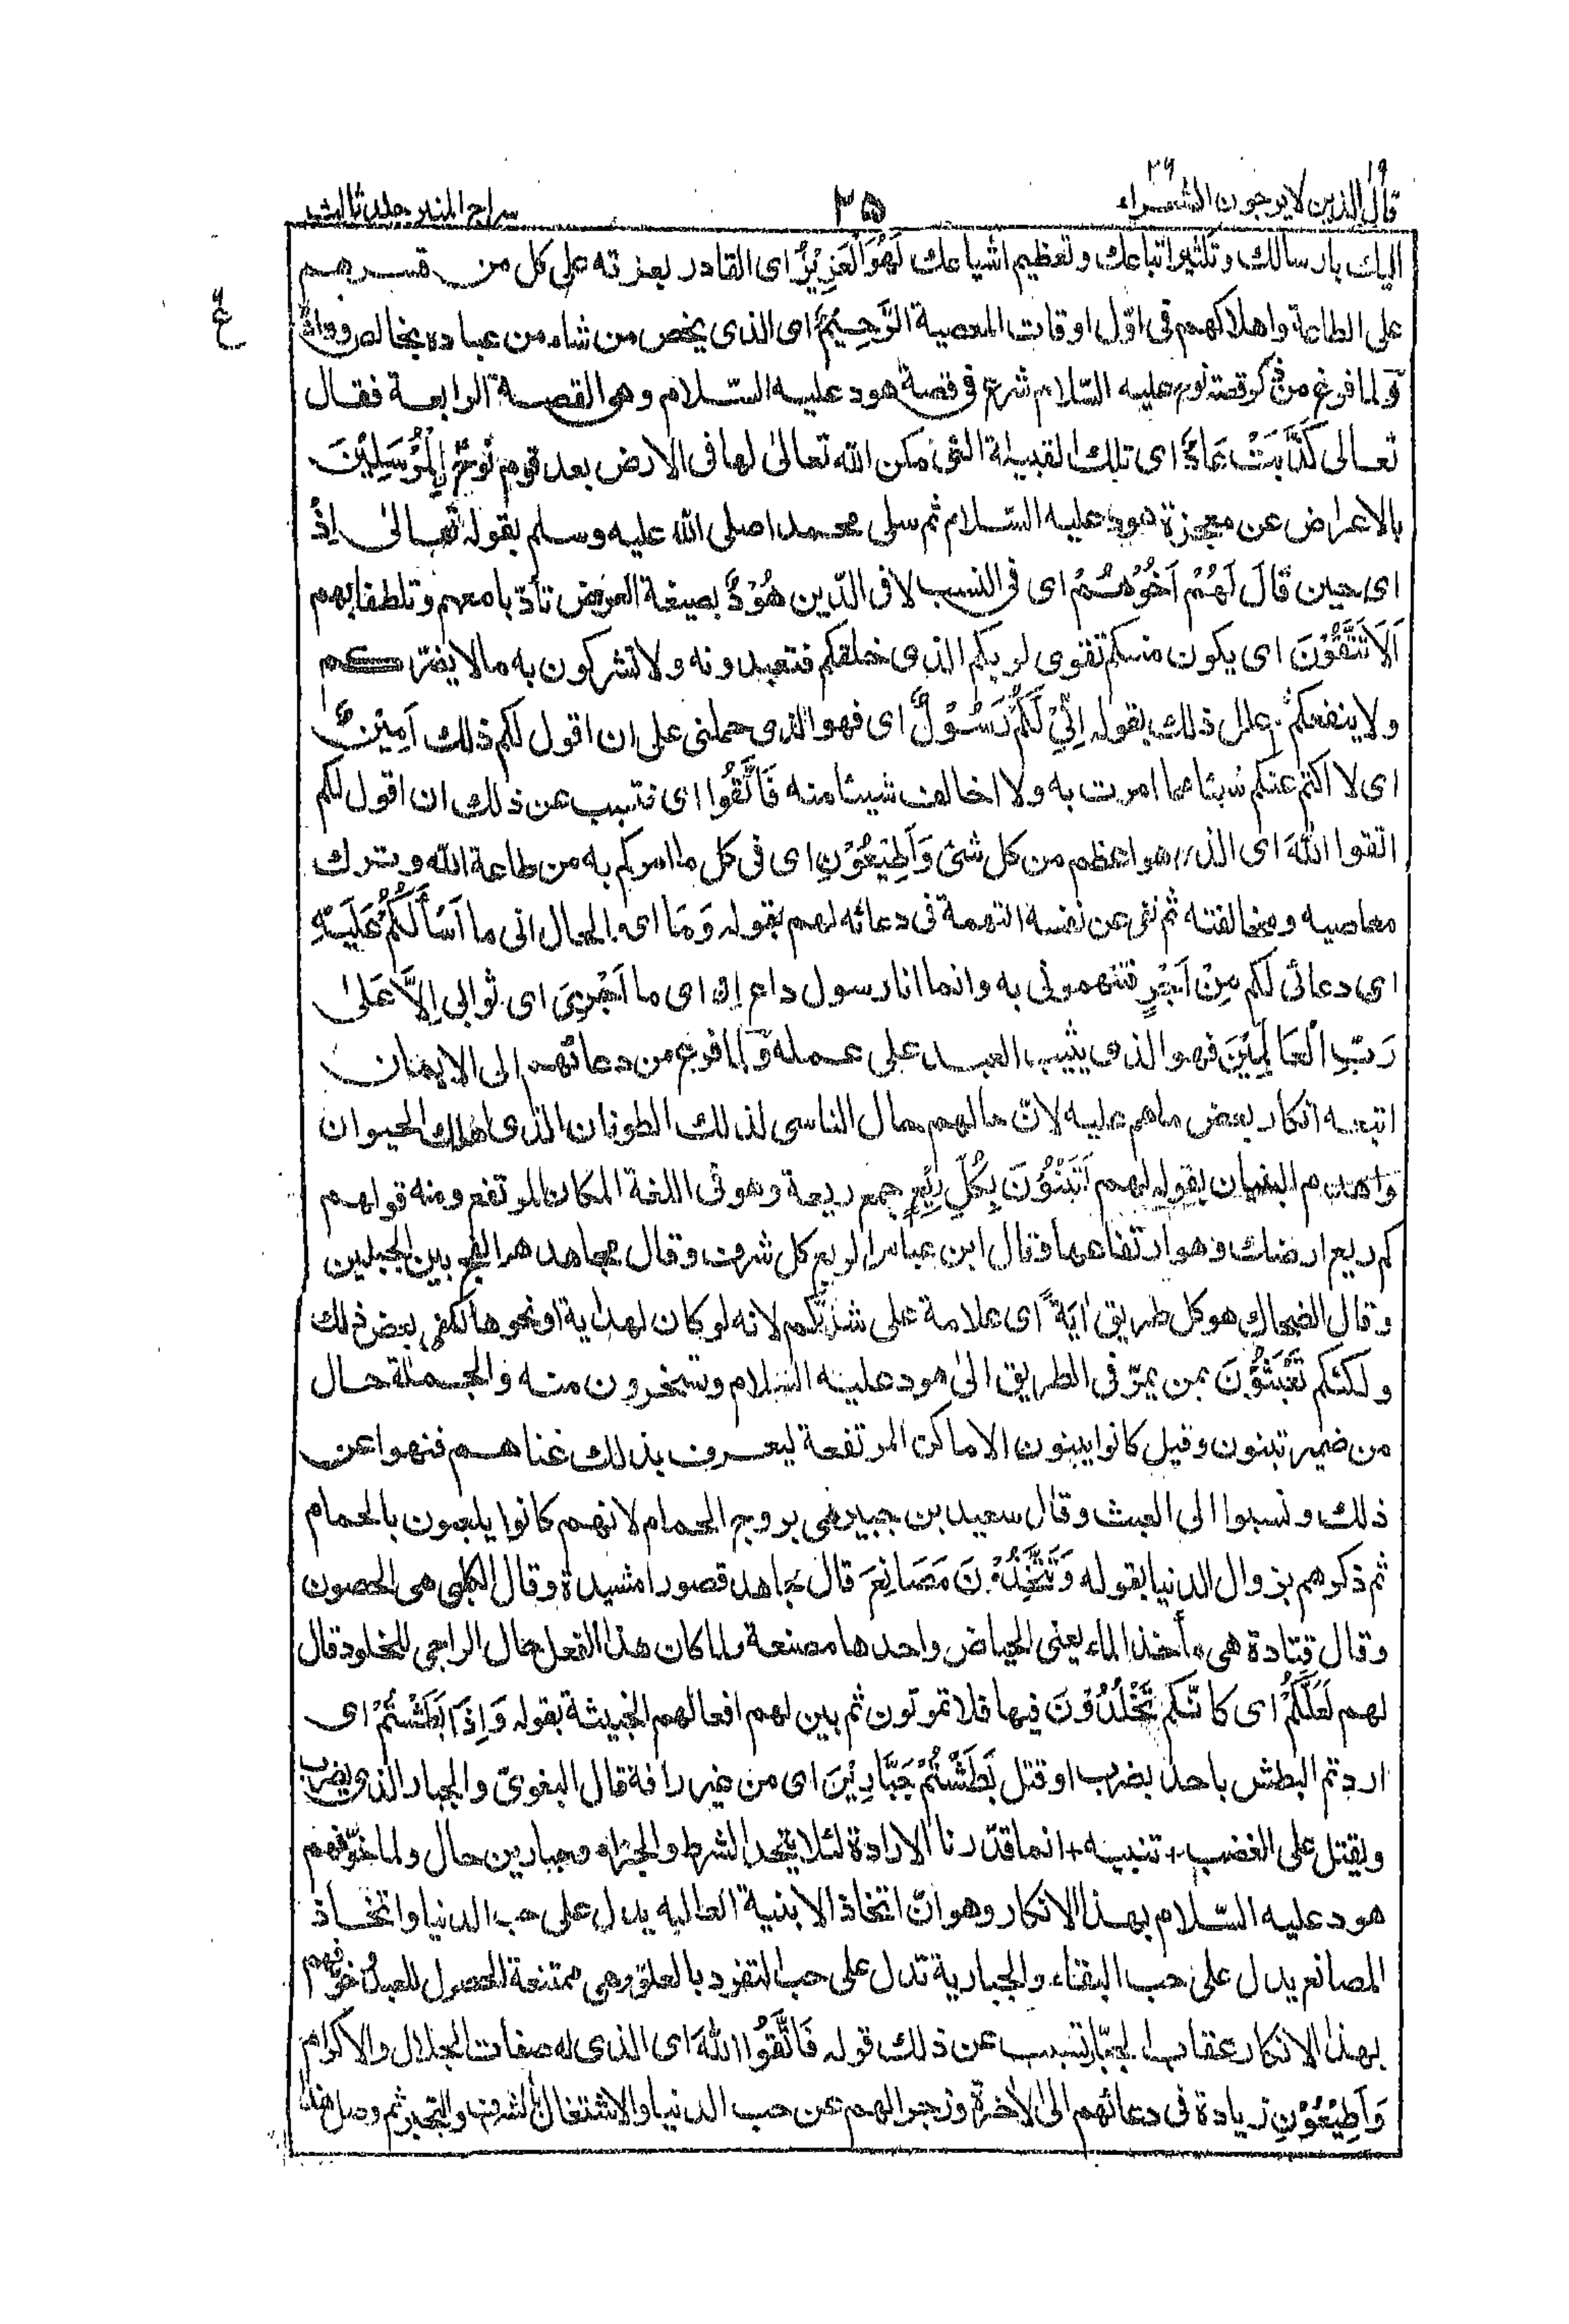 ١٩ ٢٦
قال الذين لا يرجون الشعراء ٢٥ سراج المنير جلد ثالث
اليك بارسالك وتكثير اتباعك وتعظيم اشياعك لَهُوَ الْعَزِيْزُ اى القادر بعزته على كل من قسرهم
على الطاعة واهلاكهم فى اوّل اوقات المعصية الرَّحِيْمُ اى الذى يخص من شاء من عباده بخالص وداده
وَلما فرغ من ذكر قصة نوح عليه السّلام شرع فى قصة هود عليه السّلام وهى القصة الرابعة فقال
تعالى كَذَّبَتْ عَادُ اى تلك القبيلة التى مكن الله تعالىٰ لها فى الارض بعد قوم نوح اِلْمُرْسَلِيْنَ
بالاعراض عن معجزة هود عليه السّلام ثم سلى محمدا صلى الله عليه وسلم بقوله تعالىٰ اِذْ
اى حين قَالَ لَهُمْ اَخُوْهُمْ اى فى النسب لا فى الدّين هُوْدٌ بصيغة العرض تأدّبا معهم وتلطفا بهم
اَلَا تَتَّقُوْنَ اى يكون منكم تقوى لربكم الذى خلقكم فتعبدونه ولا تشركون به مالا يضركم
ولا ينفعكم ثم علل ذلك بقوله اِنِّيْ لَكُمْ رَسُوْلٌ اى فهو الذى حملنى على ان اقول لكم ذلك اَمِيْنٌ
اى لا اكتم عنكم شيئا مما امرت به ولا اخالف شيئا منه فَاتَّقُوا اى فتسبب عن ذلك ان اقول لكم
اتقوا اللهَ اى الذى هو اعظم من كل شئ وَاَطِيْعُوْنِ اى فى كل ما امركم به من طاعة الله وترك
معاصيه ومخالفته ثم نفى عن نفسه التهمة فى دعائه لهم بقوله وَمَا اى الحال انى ما اَسْأَلُكُمْ عَلَيْهِ
اى دعائى لكم مِنْ اَجْرٍ فتتهمونى به وانما انا رسول داع اِنْ اى ما اَجْرِيَ اى ثوابى اِلَّا عَلىٰ
رَبِّ الْعَالَمِيْنَ فهو الذى يثيب العبد على عمله وَلما فرغ من دعائهم الى الايمان
اتبعه انكار بعض ماهم عليه لانّ حالهم حال الناسى لذلك الطوفان الذى اهلك الحيوان
واهدم البنيان بقوله لهم اَتَبْنُوْنَ بِكُلِّ رِيْعٍ جمع ريعة وهو فى اللغة المكان المرتفع ومنه قولهم
كم ريع ارضك وهو ارتفاعها وقال ابن عباس الريع كل شرف وقال مجاهد هو الفج بين الجبلين
وقال الضحاك هو كل طريق اٰيَةً اى علامة على شدّتكم لانه لو كان لهداية او نحوها لكفى بعض ذلك
ولكنكم تَعْبَثُوْنَ بمن يمرّ فى الطريق الىٰ هود عليه السّلام وتسخرون منه والجملة حال
من ضمير تبنون وقيل كانوا يبنون الاماكن المرتفعة ليعرف بذلك غناهم فنهوا عن
ذلك ونسبوا الى العبث وقال سعيد بن جبير هى بروج الحمام لانهم كانوا يلعبون بالحمام
ثم ذكرهم بزوال الدنيا بقوله وَتَتَّخِذُوْنَ مَصَانِعَ قال مجاهد قصورا مشيدة وقال الكلبى هى الحصون
وقال قتادة هى مأخذ الماء يعنى الحياض واحدها مصنعة ولما كان هذا الفعل حال الراجى للخلود قال
لهم لَعَلَّكُمْ اى كانّكم تَخْلُدُوْنَ فيها فلا تموتون ثم بين لهم افعالهم الخبيثة بقوله وَاِذَا بَطَشْتُمْ اى
اردتم البطش باحد بضرب او قتل بَطَشْتُمْ جَبَّارِيْنَ اى من غير رافة قال البغوىّ والجبار الذى يضرب
ويقتل على الغضب + تنبيه + انما قدّرنا الارادة لئلا يتحد الشرط والجزاء وجبارين حال ولما خوّفهم
هود عليه السّلام بهذا الانكار وهو انّ اتخاذ الابنية العاليه يدل على حب الدنيا واتخاذ
المصانع يدل على حب البقاء والجبارية تدل على حب التفرد بالعلوّ وهى ممتنعة الحصول للعبد خوّفهم
بهذا الانكار عقاب الجبّار تسبب عن ذلك قوله فَاتَّقُوا اللهَ اى الذى له صفات الجلال والاكرام
وَاَطِيْعُوْنِ زيادة فى دعائهم الى الاخرة وزجرا لهم عن حب الدنيا والاشتغال بالشرف والتجبر ثم وصل هذا